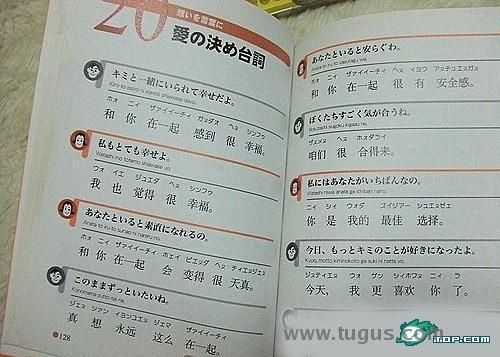 20
想いを言葉に
愛の決め台詞
キミと一緒にいられて幸せだよ。
Kimi to issyo ni irarete shiawase dayo.
ホォ ニィ ザァイイーチィ ガァダオ ヘェ シンフウ
和 你 在一起 感到 很 幸福。
私もとても幸せよ。
Watashi mo totemo shiawase yo.
ウォ イエ ジュエダ ヘェ シンフウ
我 也 觉得 很 幸福。
あなたといると素直になれるの。
Anata to iru to sunao ni nareru no.
ホォ ニィ ザァイイーチィ ホェイ ビエンダ ヘェ
和 你 在一起 会 变得 很 天真。
このままずっといたいね。
Konomama zutto itai ne.
真 想 永远 这么 在一起。
128
あなたといると安らぐわ。
Anata to iru to yasuragu wa.
ホォ ニィ ザァイイーチィ ヘェ イヨウ アァチュエンガァ
和 你 在一起 很 有 安全感。
ぼくたちすごく気が合うね。
Bokutachi sugoku kigaau ne.
ザァメェ ヘェ ホォダライ
咱们 很 合得来。
私にはあなたがいちばんなの。
Watashi niwa anata ga ichiban nano.
ニィ シィ ウォダ ズイジアー シュエェゼェ
你 是 我的 最佳 选择。
今日、もっとキミのことが好きになったよ。
Kyou, motto kiminokoto ga suki ni natta yo.
ジェティイエェ ウォ ゲン シィホワェ ニィ ラ
今天， 我 更 喜欢 你 了。
www.tugus.com
TOP.COM